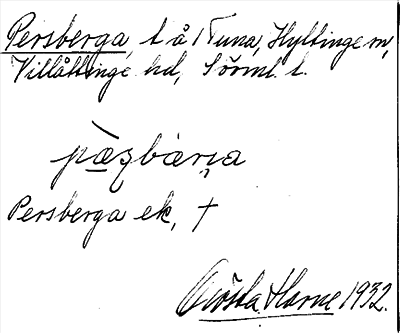 Persberga, t å Tuna, Hyltinge sn,
Villåttinge hd, Sörml. l.
pæ̀zbàrɳa
Persberga ek, †
Gösta Harne 1932.